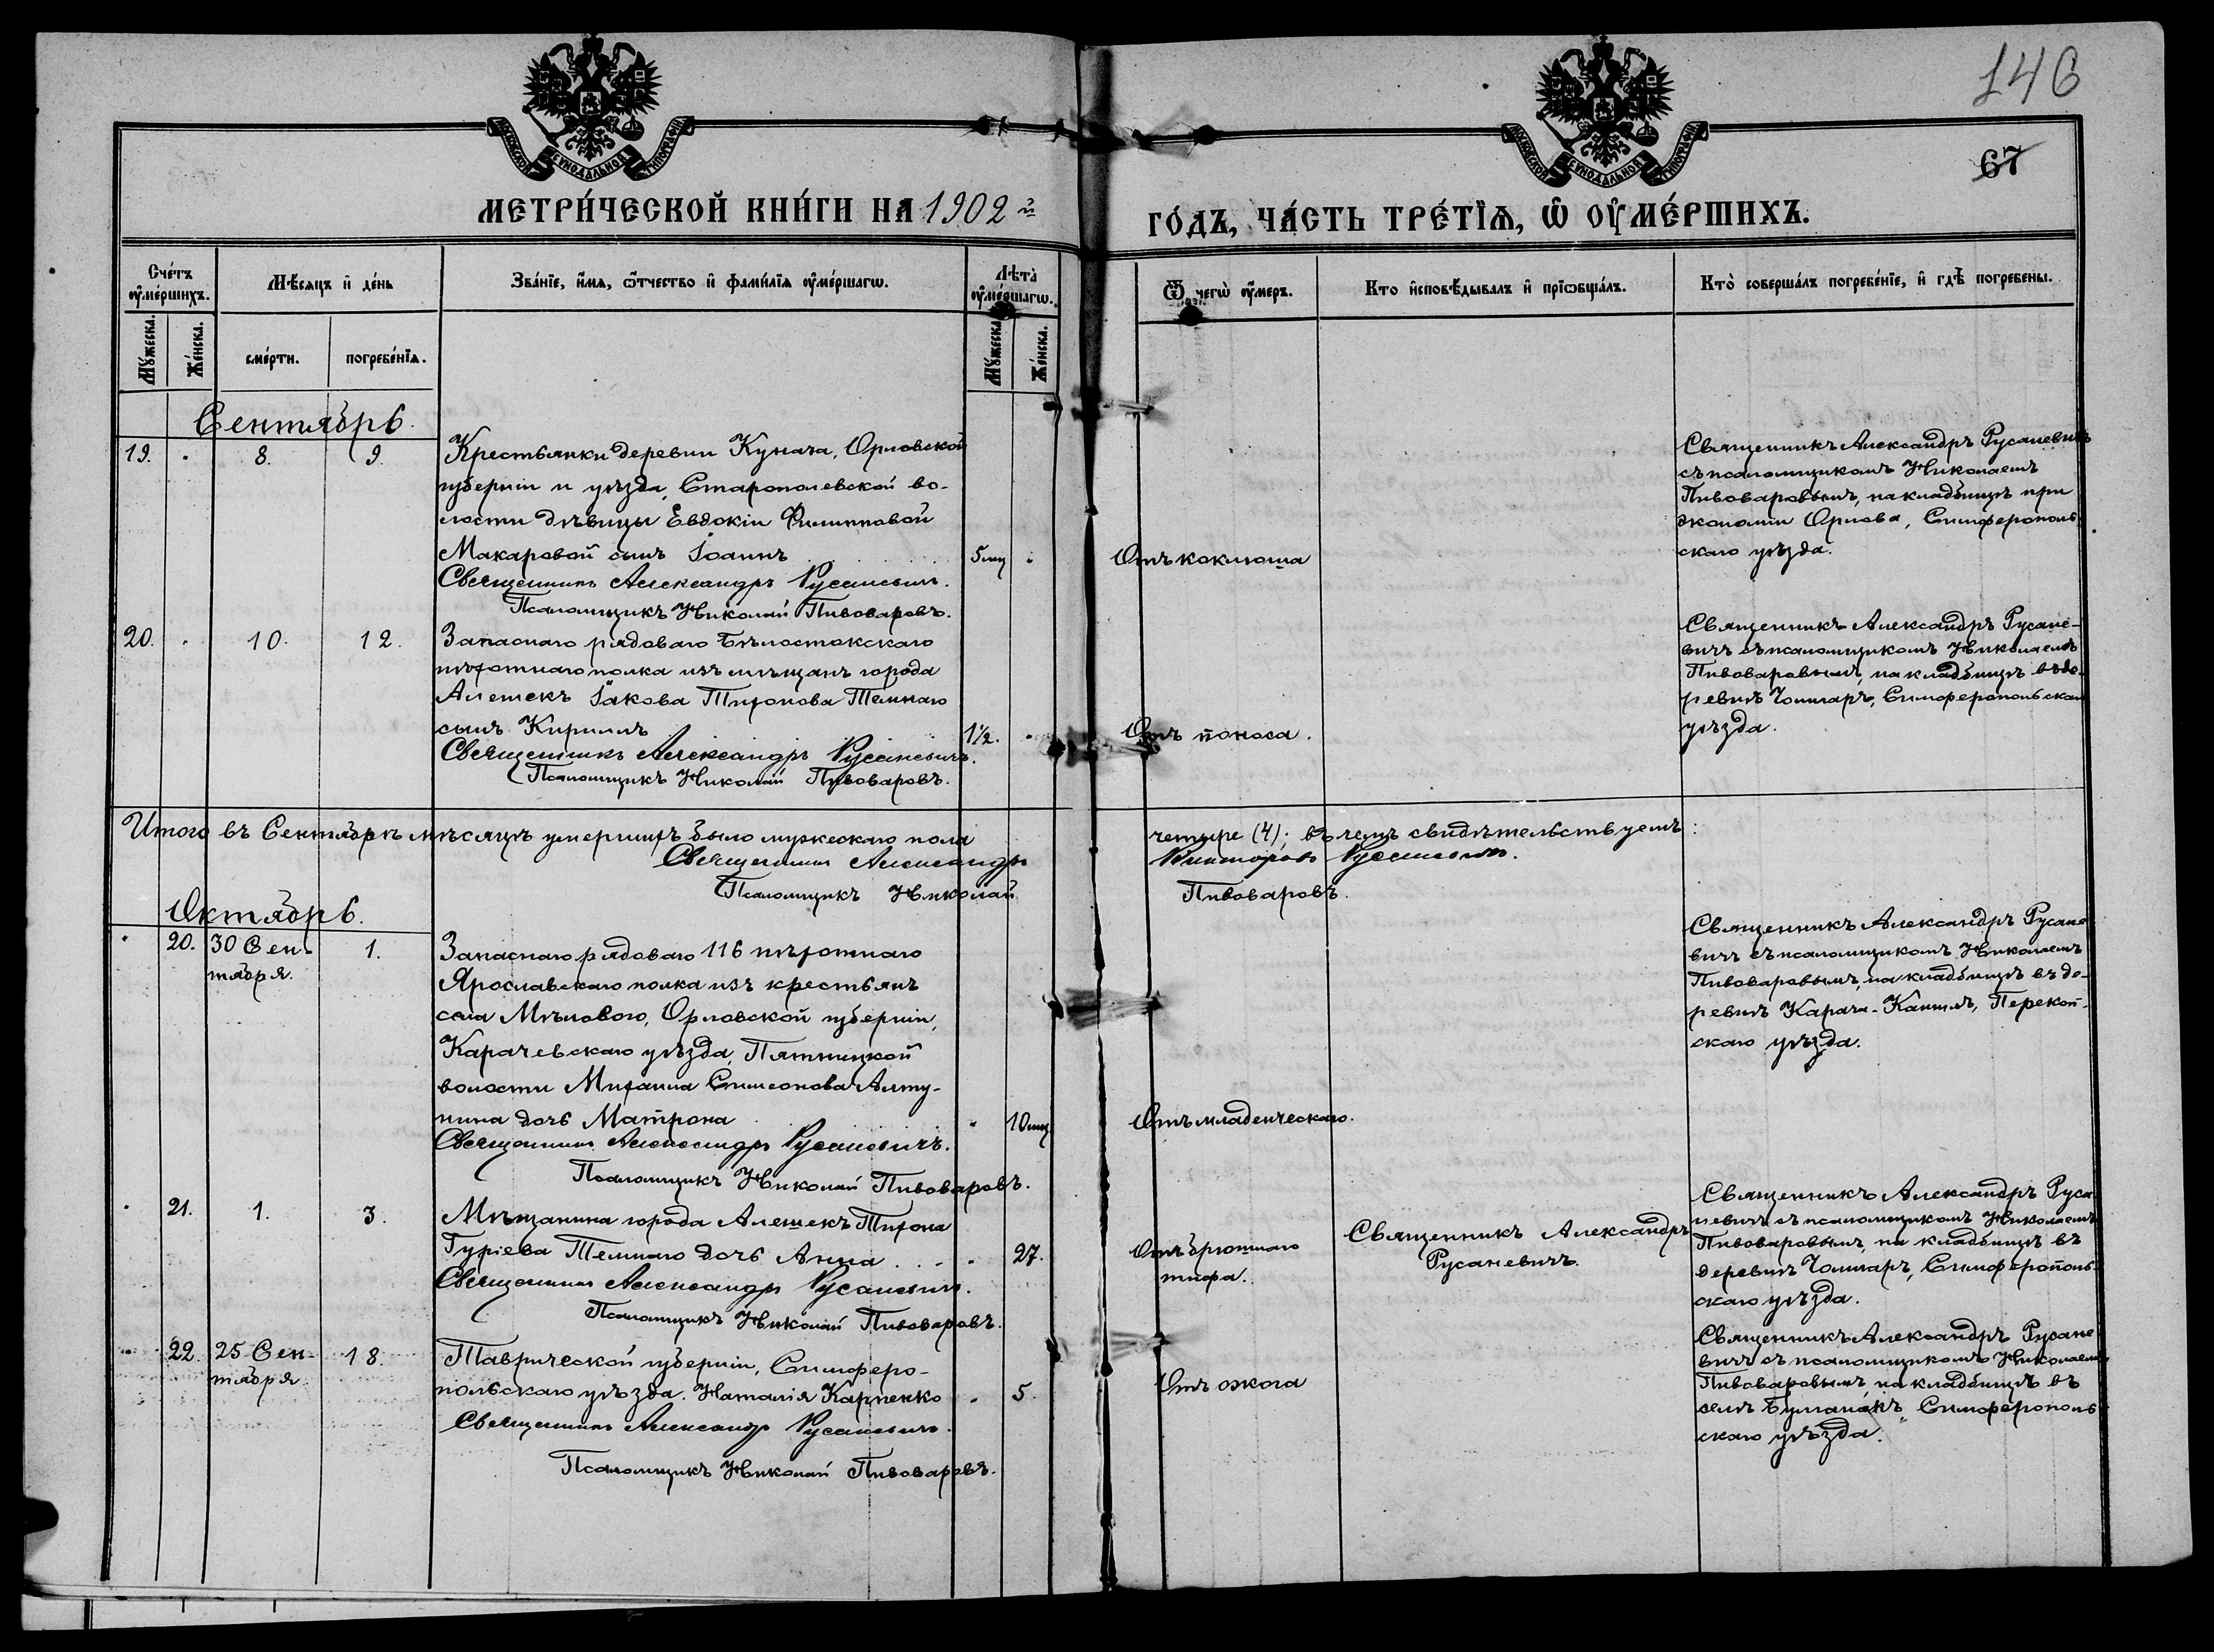 146
67
МОСКОВСКОЙ СѴНОДАЛЬНОЙ ТИПОГРАФІИ
МОСКОВСКОЙ СѴНОДАЛЬНОЙ ТИПОГРАФІИ
МЕТРИ́ЧЕСКОЙ КНИ́ГИ НА 1902 й
ГО́ДЪ, ЧА́СТЬ ТРЕ́ТІѦ, Ѡ҆ ОУ҆МЕ́РШИХЪ.
Сче́тъ оу҆ме́ршихъ.
Мѣ́сяцъ и҆ де́нь
Зва́нїе, и҆́мѧ, ѻ҆́тчество и҆ фами́лїѧ оу҆ме́ршагѡ.
Лѣта̀ оу҆ме́ршагѡ.
Ѿ чегѡ̀ оу҆́меръ.
Кто и҆сповѣ́дывалъ и҆ прїѡбща́лъ.
Кто̀ соверша́лъ погребе́нїе, и҆ гдѣ̀ погребены.
Мꙋ́жеска.
Же́нска.
сме́рти.
погребе́нїѧ.
Мꙋ́жеска.
Же́нска.
Сентябрь.
19. 8. 9.
Крестьянки деревни Кунача, Орловской
губерніи и уѣзда, Старопо­левской во-
лости дѣвицы Евдокіи Филипповой
Макаровой сынъ Іоаннъ 5 мц
Священникъ Александръ Русаневичъ.
Псаломщикъ Николай Пивоваровъ.
Отъ коклюша
Священникъ Александръ Русаневичъ
съ псаломщикомъ Николаемъ
Пивоваровымъ, на кладбищѣ при
экономіи Орлова, Симферополь
скаго уѣзда.
20. 10. 12.
Запаснаго рядоваго Бѣлостокскаго
пѣхотнаго полка изъ мѣщанъ города
Алешекъ Іакова Тихонова Темнаго
сынъ Кириллъ 1½.
Священникъ Александръ Русаневичъ.
Псаломщикъ Николай Пивоваровъ.
Отъ поноса.
Священникъ Александръ Русане-
вичъ съ псаломщикомъ Николаемъ
Пивоваровымъ, на кладбищѣ въ де-
ревнѣ Чонгаръ, Симферопольскаго
уѣзда.
Итого въ Сентябрѣ мѣсяцѣ умершихъ было мужескаго пола четыре (4); въ чемъ свидѣтельствуемъ:
Священникъ Александръ Викторовъ Русаневичъ.
Псаломщикъ Николай Пивоваровъ.
Октябрь.
20. 30 Сен- 1.
тября.
Запаснаго рядоваго 116 пѣхотнаго
Ярославскаго полка изъ крестьянъ
села Мѣлового, Орловской губерніи,
Карачевскаго уѣзда, Пятницкой
волости Михаила Симеонова Алту-
нина дочь Матрона 10 мц
Священникъ Александръ Русаневичъ.
Псаломщикъ Николай Пивоваровъ.
Отъ младенческаго.
Священникъ Александръ Русане
вичъ съ псаломщикомъ Николаемъ
Пивоваровымъ, на кладбищѣ въ де-
ревнѣ Карачи-Кангилъ, Перекоп-
скаго уѣзда.
21. 1. 3.
Мѣщанина города Алешекъ Тихона
Гуріева Темнаго дочь Анна 27.
Священникъ Александръ Русаневичъ.
Псаломщикъ Николай Пивоваровъ.
Отъ брюшнаго
тифа.
Священникъ Александръ
Русаневичъ.
Священникъ Александръ Руса
невичъ съ псаломщикомъ Николаемъ
Пивоваровымъ, на кладбищѣ въ
деревнѣ Чонгаръ, Симферополь-
скаго уѣзда.
22. 25 Сен- 18.
тября.
Таврической губерніи, Симферо-
польскаго уѣзда. Наталія Карпенко 5.
Священникъ Александръ Русаневичъ.
Псаломщикъ Николай Пивоваровъ.
Отъ ожога
Священникъ Александръ Русане
вичъ съ псаломщикомъ Николаемъ
Пивоваровымъ, на кладбищѣ въ
селѣ Булганакъ Симферополь
скаго уѣзда.